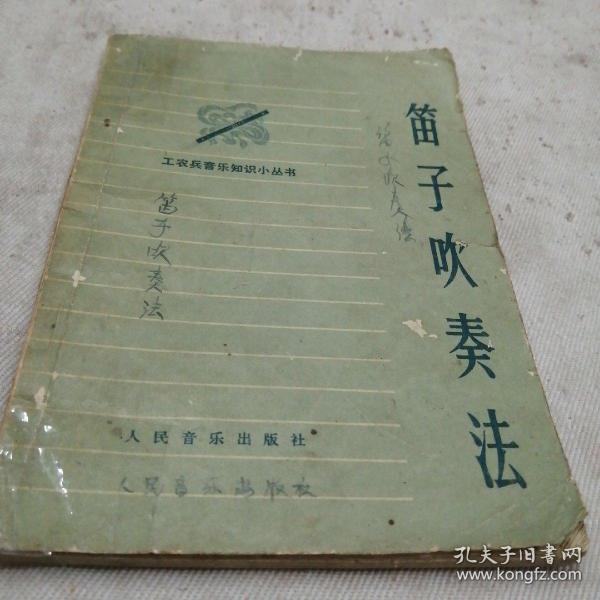 笛子吹奏法
工农兵音乐知识小丛书
笛子吹奏法
笛子吹奏法
人民音乐出版社
人民音乐出版社
孔夫子旧书网
www.kongfz.com